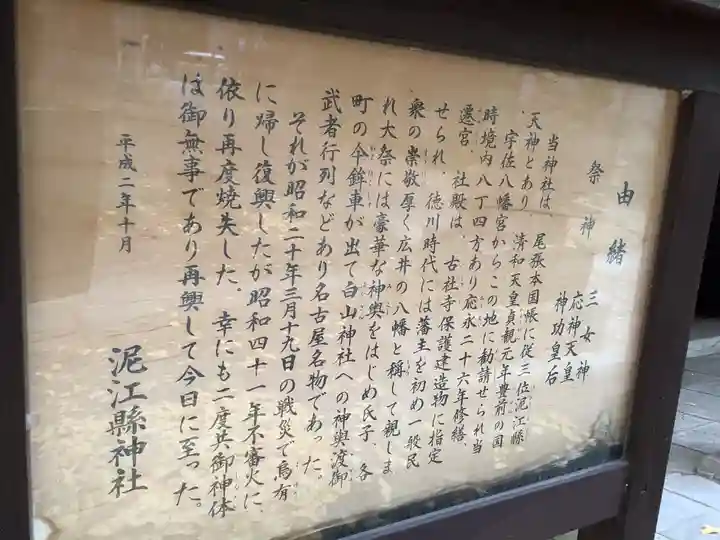 由緒
祭神
三女神
応神天皇
神功皇后
当神社は、尾張本国帳に従三位泥江縣
天神とあり、清和天皇貞観元年豊前の国
宇佐八幡宮からこの地に勧請せられ当
時境内八丁四方あり応永二十六年修繕、
遷宮、社殿は、古社寺保護建造物に指定
せられ、徳川時代には藩主を初め一般民
衆の崇敬厚く広井の八幡と称して親しま
れ大祭には豪華な神輿をはじめ氏子、各
町の傘鉾車が出て白山神社への神輿渡御
武者行列などあり名古屋名物であった。
それが昭和二十年三月十九日の戦災で烏有
に帰し復興したが昭和四十一年不審火に、
依り再度焼失した。幸にも二度共御神体
は御無事であり再興して今日に至った。
平成二年十月
泥江縣神社